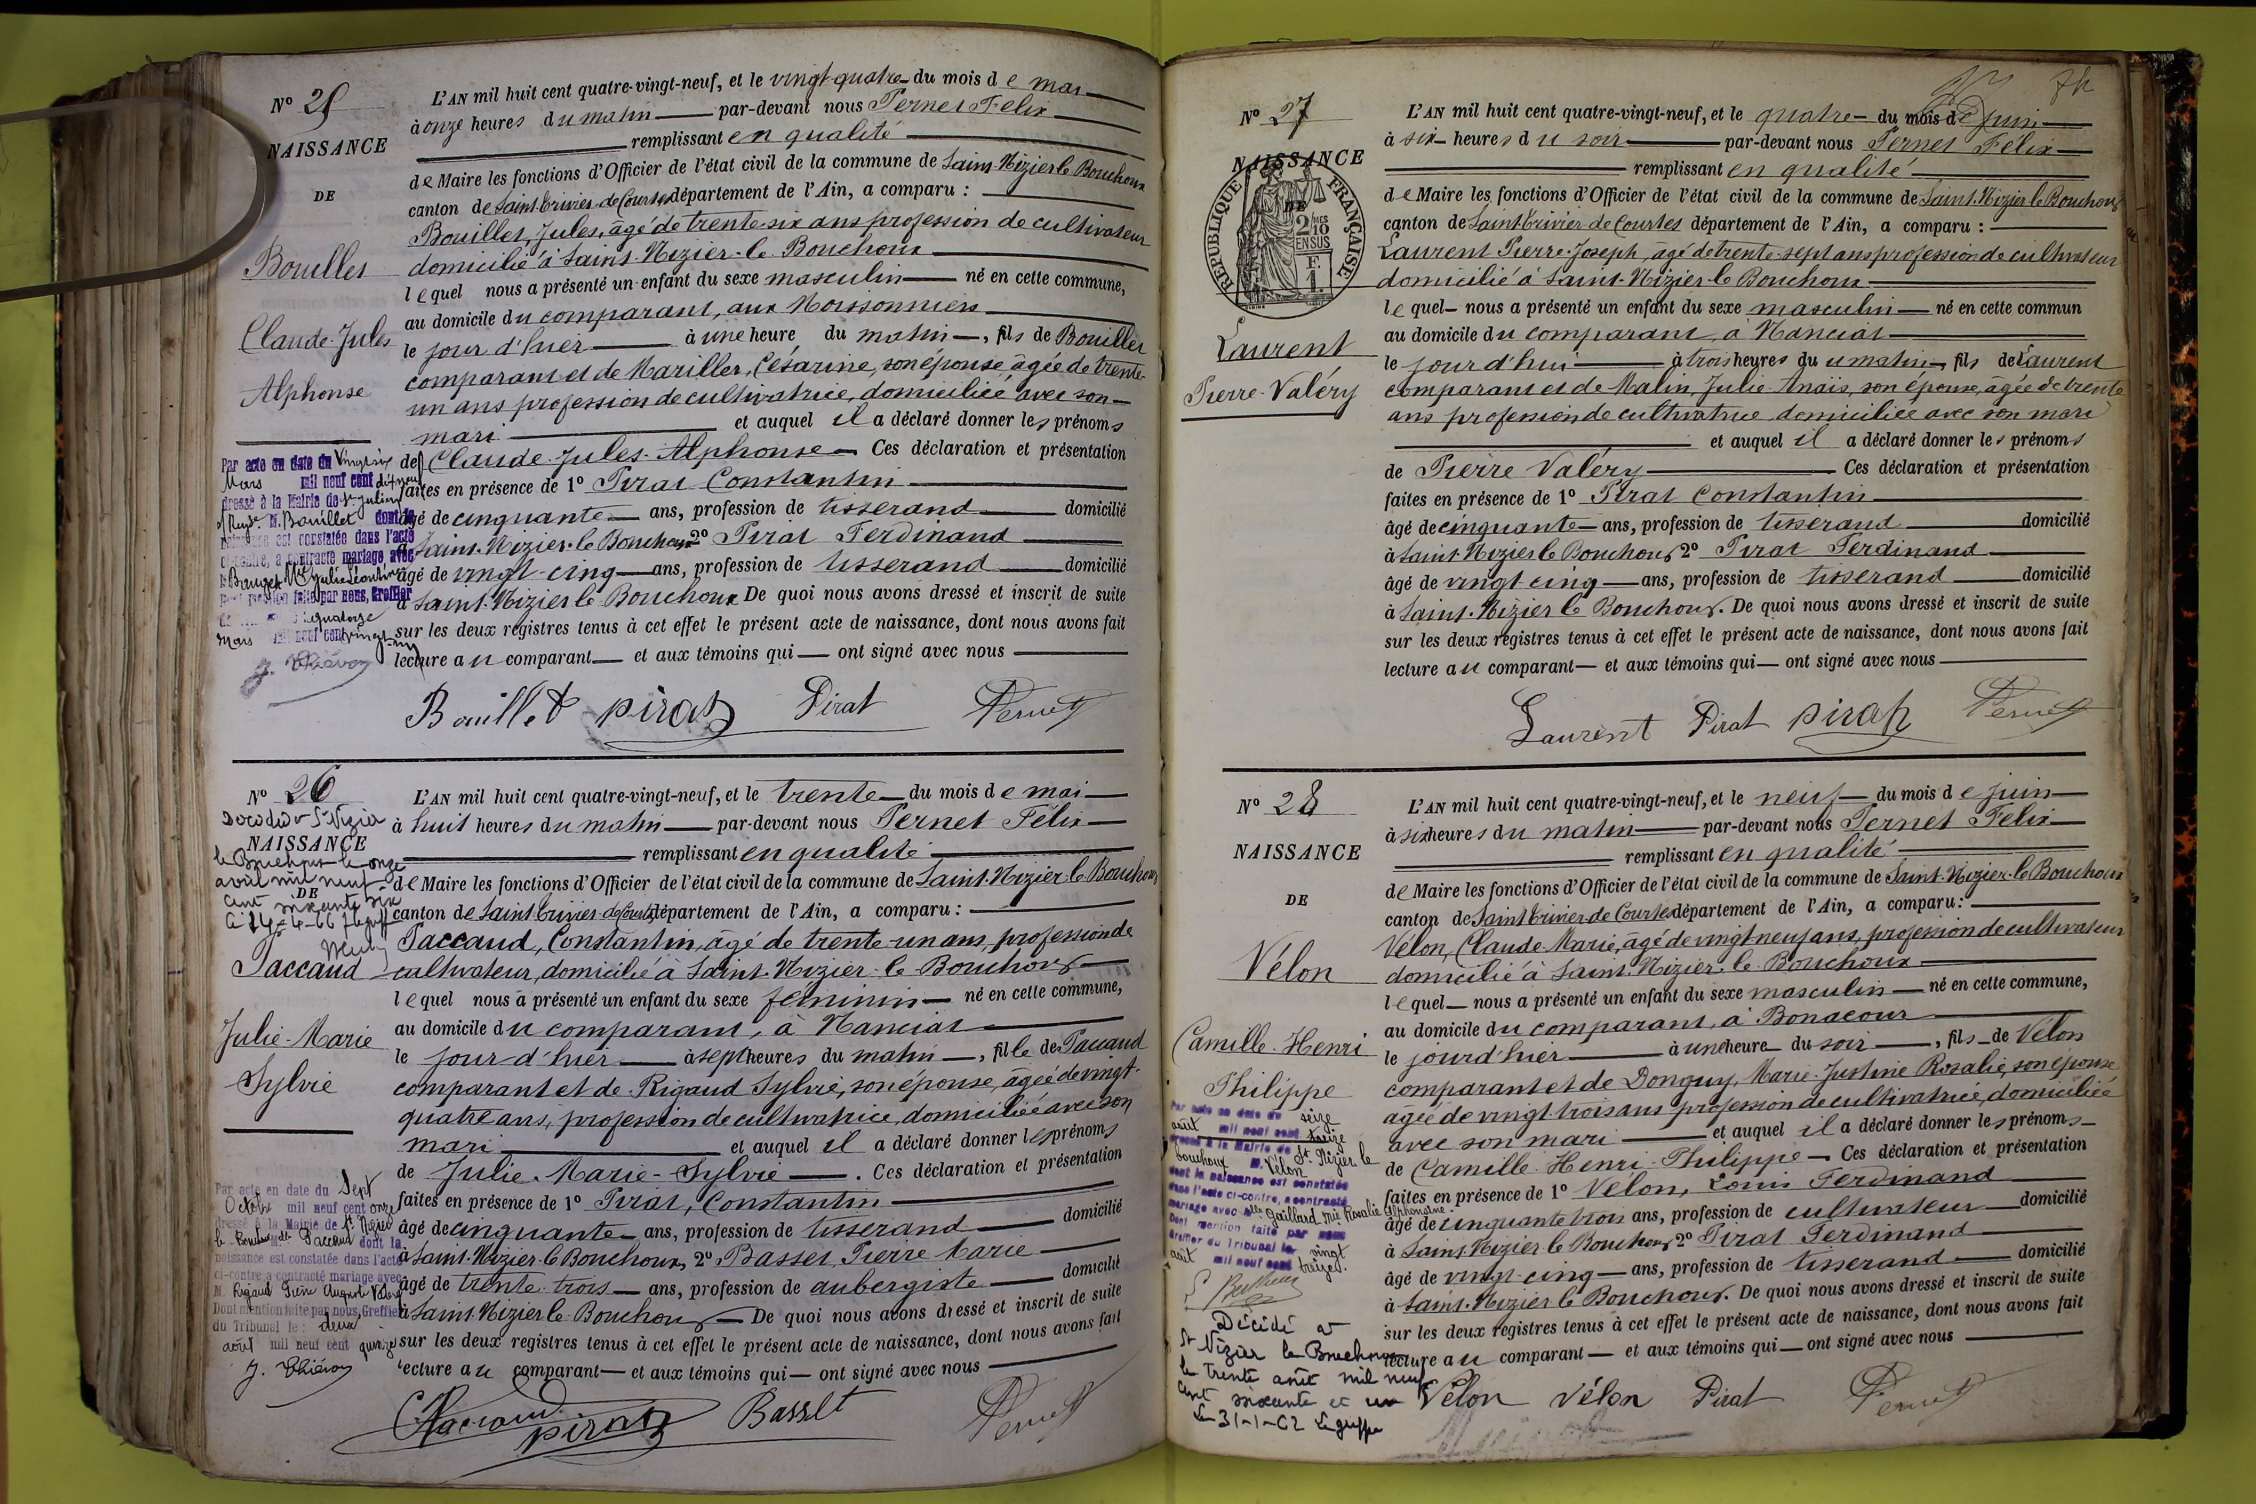 N° 25
NAISSANCE
DE
Bouillet
Claude-Jules
Alphonse
L'AN mil huit cent quatre-vingt-neuf, et le vingt-quatre du mois de mai
à onze heures du matin par-devant nous Pernet Félix
remplissant en qualité
de Maire les fonctions d'Officier de l'état civil de la commune de Saint-Nizier-le-Bouchoux
canton de Saint-Trivier-de-Courtes département de l'Ain, a comparu :
Bouillet, Jules, âgé de trente-six ans profession de cultivateur
domicilié à Saint-Nizier-le-Bouchoux
lequel nous a présenté un enfant du sexe masculin né en cette commune,
au domicile du comparant, aux Moissonniers
le jour d'hier à une heure du matin, fils de Bouillet
comparant et de Mariller, Césarine, son épouse âgée de trente-
un ans profession de cultivatrice, domiciliée avec son
mari et auquel il a déclaré donner les prénoms
de Claude-Jules-Alphonse Ces déclaration et présentation
faites en présence de 1° Pirat Constantin
âgé de cinquante ans, profession de tisserand domicilié
à Saint-Nizier-le-Bouchoux 2° Pirat Ferdinand
âgé de vingt-cinq ans, profession de tisserand domicilié
à Saint-Nizier-le-Bouchoux De quoi nous avons dressé et inscrit de suite
sur les deux registres tenus à cet effet le présent acte de naissance, dont nous avons fait
lecture au comparant et aux témoins qui ont signé avec nous
Par acte en date du vingt six
Mars mil neuf cent dix neuf
dressé à la Mairie de St Julien
s/ Reyss. M. Bouillet dont la
naissance est constatée dans l'acte
ci-contre, a contracté mariage avec
Mie Julie Léontine
mention faite par nous, Greffier
quatorze
Mars mil neuf cent vingt-un
J. Thiévon
Bouillet pirat Pirat Pernet
N° 26
Décédée à St Nizier
NAISSANCE
le Bouchoux le onze
avril mil neuf
DE
cent soixante six
Le 14-4-66
Paccaud
Julie-Marie
Sylvie
L'AN mil huit cent quatre-vingt-neuf, et le trente du mois de mai
à huit heures du matin par-devant nous Pernet Félix
remplissant en qualité
de Maire les fonctions d'Officier de l'état civil de la commune de Saint-Nizier-le-Bouchoux
canton de Saint-Trivier-de-Courtes département de l'Ain, a comparu :
Paccaud, Constantin, âgé de trente-un ans, profession de
cultivateur, domicilié à Saint-Nizier-le-Bouchoux
lequel nous a présenté un enfant du sexe féminin né en cette commune,
au domicile du comparant, à Nanciat
le jour d'hier à sept heures du matin, fille de Paccaud
comparant et de Rigaud Sylvie, son épouse, âgée de vingt-
quatre ans, profession de cultivatrice, domiciliée avec son
mari et auquel il a déclaré donner les prénoms
de Julie-Marie-Sylvie. Ces déclaration et présentation
faites en présence de 1° Pirat, Constantin
âgé de cinquante ans, profession de tisserand domicilié
à Saint-Nizier-le-Bouchoux, 2° Basset, Pierre Marie
âgé de trente-trois ans, profession de aubergiste domicilié
à Saint-Nizier-le-Bouchoux De quoi nous avons dressé et inscrit de suite
sur les deux registres tenus à cet effet le présent acte de naissance, dont nous avons fait
lecture au comparant et aux témoins qui ont signé avec nous
Par acte en date du Sept
Octobre mil neuf cent onze
dressé à la Mairie de St Nizier
le Bouchoux Mlle Paccaud dont la
naissance est constatée dans l'acte
ci-contre a contracté mariage avec
M. Rigaud
Dont mention faite par nous, Greffier
du Tribunal le: deux
août mil neuf cent quinze
J. Thiévon
Paccaud pirat Basset Pernet
N° 27
NAISSANCE
DE
RÉPUBLIQUE FRANÇAISE
2/10
EN SUS
F.
1.
Laurent
Pierre-Valéry
L'AN mil huit cent quatre-vingt-neuf, et le quatre du mois de Juin
à six heures du soir par-devant nous Pernet Félix
remplissant en qualité
de Maire les fonctions d'Officier de l'état civil de la commune de Saint-Nizier-le-Bouchoux
canton de Saint-Trivier de Courtes département de l'Ain, a comparu :
Laurent Pierre-Joseph, âgé de trente-sept ans profession de cultivateur
domicilié à Saint-Nizier-le-Bouchoux
lequel nous a présenté un enfant du sexe masculin né en cette commun
au domicile du comparant, à Nanciat
le jour d'hui à trois heures du matin, fils de Laurent
comparant et de Malin, Julie-Anaïs, son épouse, âgée de trente
ans profession de cultivatrice domiciliée avec son mari
et auquel il a déclaré donner les prénoms
de Pierre Valéry Ces déclaration et présentation
faites en présence de 1° Pirat Constantin
âgé de cinquante ans, profession de tisserand domicilié
à Saint-Nizier-le-Bouchoux 2° Pirat Ferdinand
âgé de vingt-cinq ans, profession de tisserand domicilié
à Saint-Nizier-le-Bouchoux. De quoi nous avons dressé et inscrit de suite
sur les deux registres tenus à cet effet le présent acte de naissance, dont nous avons fait
lecture au comparant et aux témoins qui ont signé avec nous
Laurent Pirat pirat Pernet
N° 28
NAISSANCE
DE
Vélon
Camille-Henri
Philippe
L'AN mil huit cent quatre-vingt-neuf, et le neuf du mois de juin
à six heures du matin par-devant nous Pernet Félix
remplissant en qualité
de Maire les fonctions d'Officier de l'état civil de la commune de Saint-Nizier-le-Bouchoux
canton de Saint-Trivier-de-Courtes département de l'Ain, a comparu :
Vélon, Claude-Marie, âgé de vingt-neuf ans, profession de cultivateur
domicilié à Saint-Nizier-le-Bouchoux
lequel nous a présenté un enfant du sexe masculin né en cette commune,
au domicile du comparant, à Bonacour
le jour d'hier à une heure du soir, fils de Vélon
comparant et de Donguy, Marie-Justine Rosalie, son épouse
agée de vingt-trois ans profession de cultivatrice, domiciliée
avec son mari et auquel il a déclaré donner les prénoms
de Camille-Henri-Philippe Ces déclaration et présentation
faites en présence de 1° Vélon, Louis Ferdinand
âgé de cinquante trois ans, profession de cultivateur domicilié
à Saint-Nizier-le-Bouchoux 2° Pirat Ferdinand
âgé de vingt-cinq ans, profession de tisserand domicilié
à Saint-Nizier-le-Bouchoux. De quoi nous avons dressé et inscrit de suite
sur les deux registres tenus à cet effet le présent acte de naissance, dont nous avons fait
lecture au comparant et aux témoins qui ont signé avec nous
Par acte en date du seize
août mil neuf cent treize
dressé à la Mairie de St Nizier le
bouchoux M. Vélon
dont la naissance est constatée
dans l'acte ci-contre, a contracté
mariage avec Mlle Gaillard Mie Rosalie Alphonsine
Dont mention faite par nous
Greffier du Tribunal le vingt
août mil neuf cent treize.
Décédé à
St Nizier le Bouchoux
le trente août mil neuf
cent soixante et un
Le 31-1-62 Le greffier
Vélon Vélon Pirat Pernet